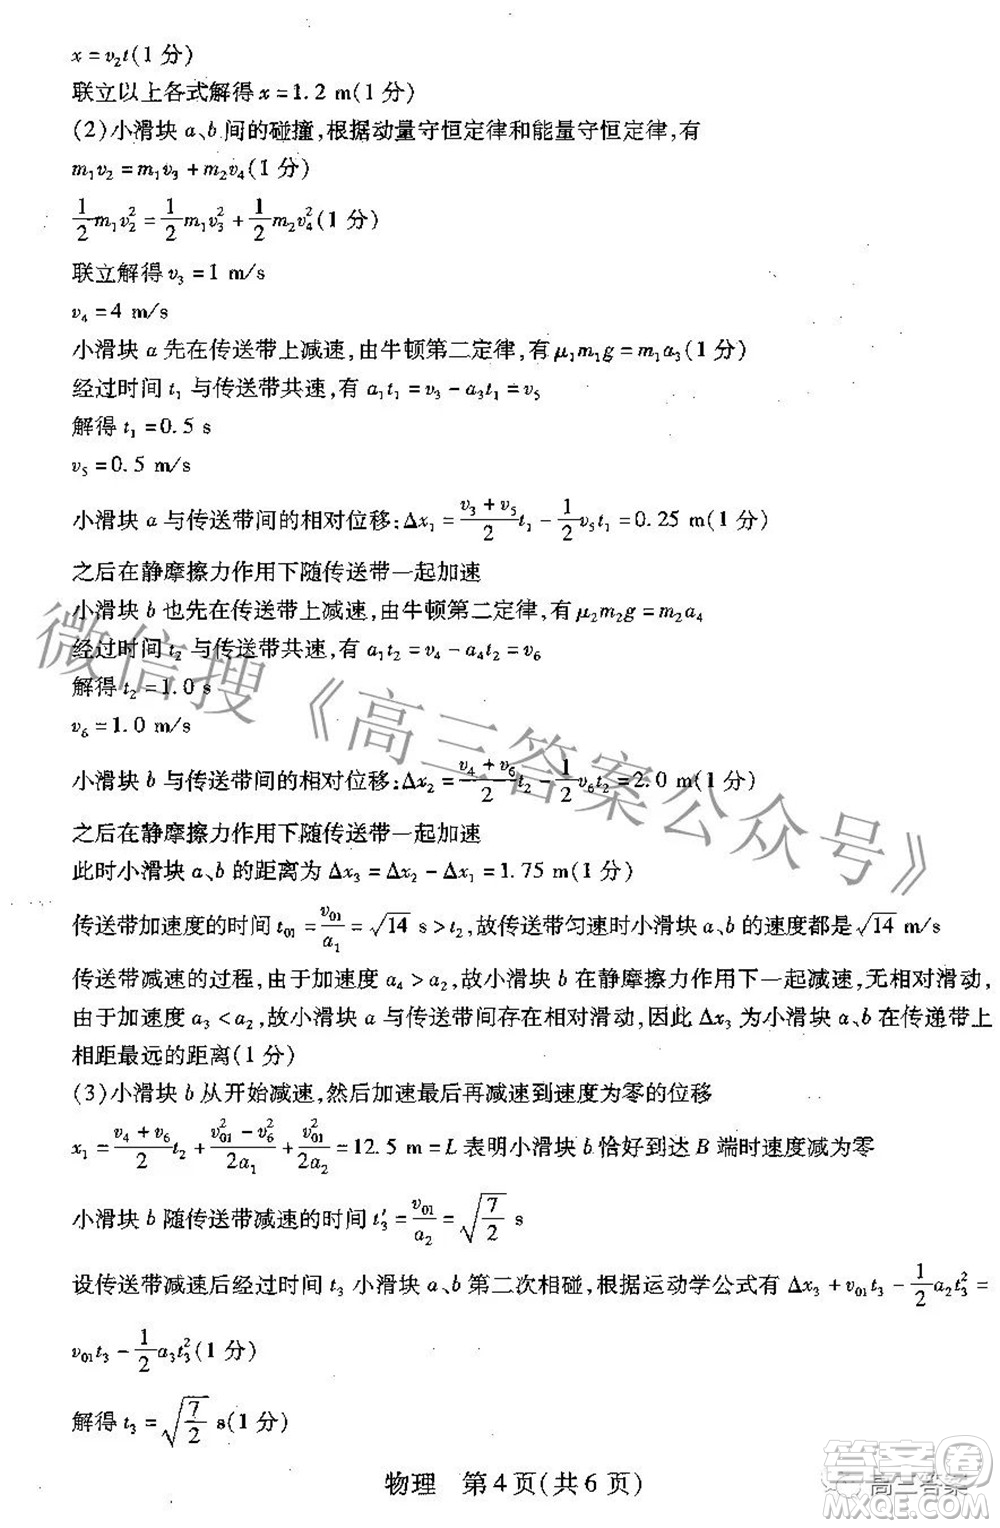 x=v₂t(1分)
联立以上各式解得 x=1.2 m(1分)
(2)小滑块 a、b 间的碰撞,根据动量守恒定律和能量守恒定律,有
m₁v₂=m₁v₃+m₂v₄(1分)
1/2 m₁v₂²=1/2 m₁v₃²+1/2 m₂v₄²(1分)
联立解得 v₃=1 m/s
v₄=4 m/s
小滑块 a 先在传送带上减速,由牛顿第二定律,有 μ₁m₁g=m₁a₃(1分)
经过时间 t₁ 与传送带共速,有 a₁t₁=v₃-a₃t₁=v₅
解得 t₁=0.5 s
v₅=0.5 m/s
小滑块 a 与传送带间的相对位移:Δx₁=(v₃+v₅)/2 t₁-1/2 v₅t₁=0.25 m(1分)
之后在静摩擦力作用下随传送带一起加速
小滑块 b 也先在传送带上减速,由牛顿第二定律,有 μ₂m₂g=m₂a₄
经过时间 t₂ 与传送带共速,有 a₁t₂=v₄-a₄t₂=v₆
解得 t₂=1.0 s
v₆=1.0 m/s
小滑块 b 与传送带间的相对位移:Δx₂=(v₄+v₆)/2 t₂-1/2 v₆t₂=2.0 m(1分)
之后在静摩擦力作用下随传送带一起加速
此时小滑块 a、b 的距离为 Δx₃=Δx₂-Δx₁=1.75 m(1分)
传送带加速度的时间 t₀₁=v₀₁/a₁=√14 s>t₂,故传送带匀速时小滑块 a、b 的速度都是√14 m/s
传送带减速的过程,由于加速度 a₄>a₂,故小滑块 b 在静摩擦力作用下一起减速,无相对滑动,
由于加速度 a₃<a₂,故小滑块 a 与传送带间存在相对滑动,因此 Δx₃ 为小滑块 a、b 在传递带上
相距最远的距离(1分)
(3)小滑块 b 从开始减速,然后加速最后再减速到速度为零的位移
x₁=(v₄+v₆)/2 t₂+(v₀₁²-v₆²)/2a₁+v₀₁²/2a₁=12.5 m=L 表明小滑块 b 恰好到达 B 端时速度减为零
小滑块 b 随传送带减速的时间 t₃′=v₀₁/a₂=√(7/2) s
设传送带减速后经过时间 t₃ 小滑块 a、b 第二次相碰,根据运动学公式有 Δx₃+v₀₁t₃-1/2 a₂t₃²=
v₀₁t₃-1/2 a₃t₃²(1分)
解得 t₃=√(7/2) s(1分)
物理 第4页(共6页)
微信搜《高三答案公众号》
高三答案
答案圈
MXQE.COM